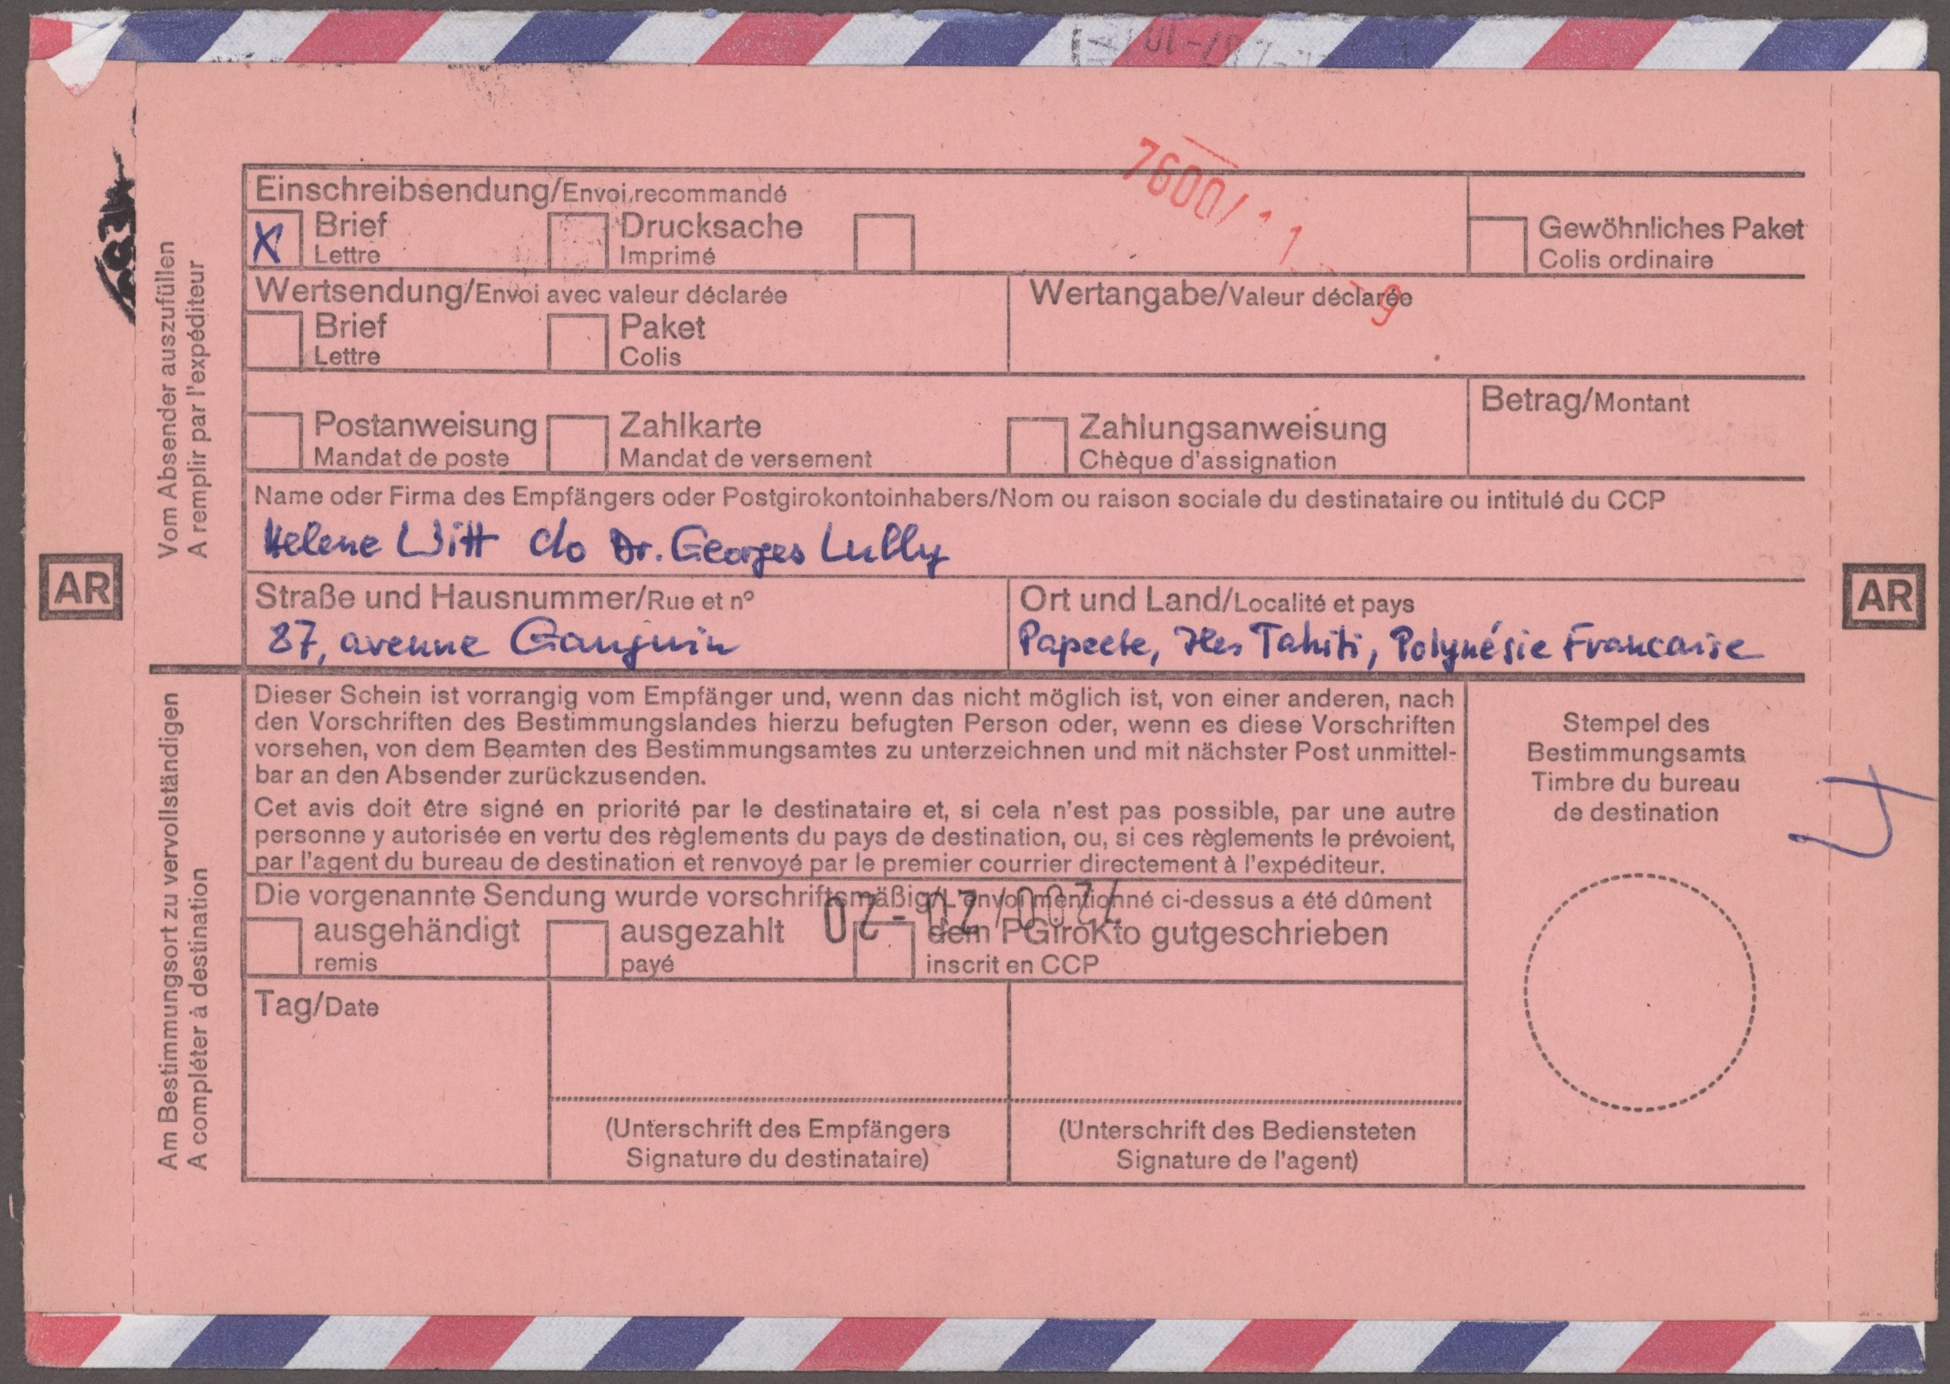 Einschreibsendung/Envoi recommandé
X Brief Drucksache Gewöhnliches Paket
Lettre Imprimé Colis ordinaire
7600/
Wertsendung/Envoi avec valeur déclarée Wertangabe/Valeur déclarée
Brief Paket
Lettre Colis
Betrag/Montant
Postanweisung Zahlkarte Zahlungsanweisung
Mandat de poste Mandat de versement Chèque d'assignation
Vom Absender auszufüllen
A remplir par l'expéditeur
Name oder Firma des Empfängers oder Postgirokontoinhabers/Nom ou raison sociale du destinataire ou intitulé du CCP
Helene Witt c/o Dr. Georges Lully
AR
AR
Straße und Hausnummer/Rue et nº Ort und Land/Localité et pays
87, avenue Gauguin Papeete, Iles Tahiti, Polynésie Francaise
Am Bestimmungsort zu vervollständigen
A compléter à destination
Dieser Schein ist vorrangig vom Empfänger und, wenn das nicht möglich ist, von einer anderen, nach
den Vorschriften des Bestimmungslandes hierzu befugten Person oder, wenn es diese Vorschriften
vorsehen, von dem Beamten des Bestimmungsamtes zu unterzeichnen und mit nächster Post unmittel-
bar an den Absender zurückzusenden.
Cet avis doit être signé en priorité par le destinataire et, si cela n'est pas possible, par une autre
personne y autorisée en vertu des règlements du pays de destination, ou, si ces règlements le prévoient,
par l'agent du bureau de destination et renvoyé par le premier courrier directement à l'expéditeur.
Stempel des
Bestimmungsamts
Timbre du bureau
de destination
4
Die vorgenannte Sendung wurde vorschriftsmäßig/L'envoi mentionné ci-dessus a été dûment
ausgehändigt ausgezahlt dem PGiroKto gutgeschrieben
remis payé inscrit en CCP
Tag/Date
(Unterschrift des Empfängers (Unterschrift des Bediensteten
Signature du destinataire) Signature de l'agent)